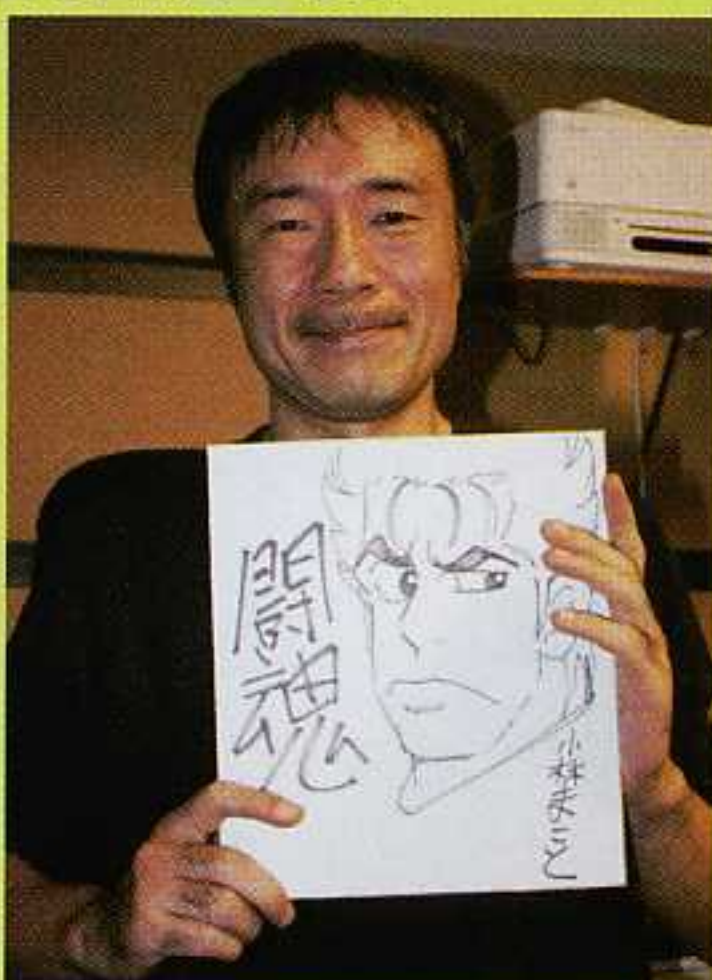 闘魂
小林まこと